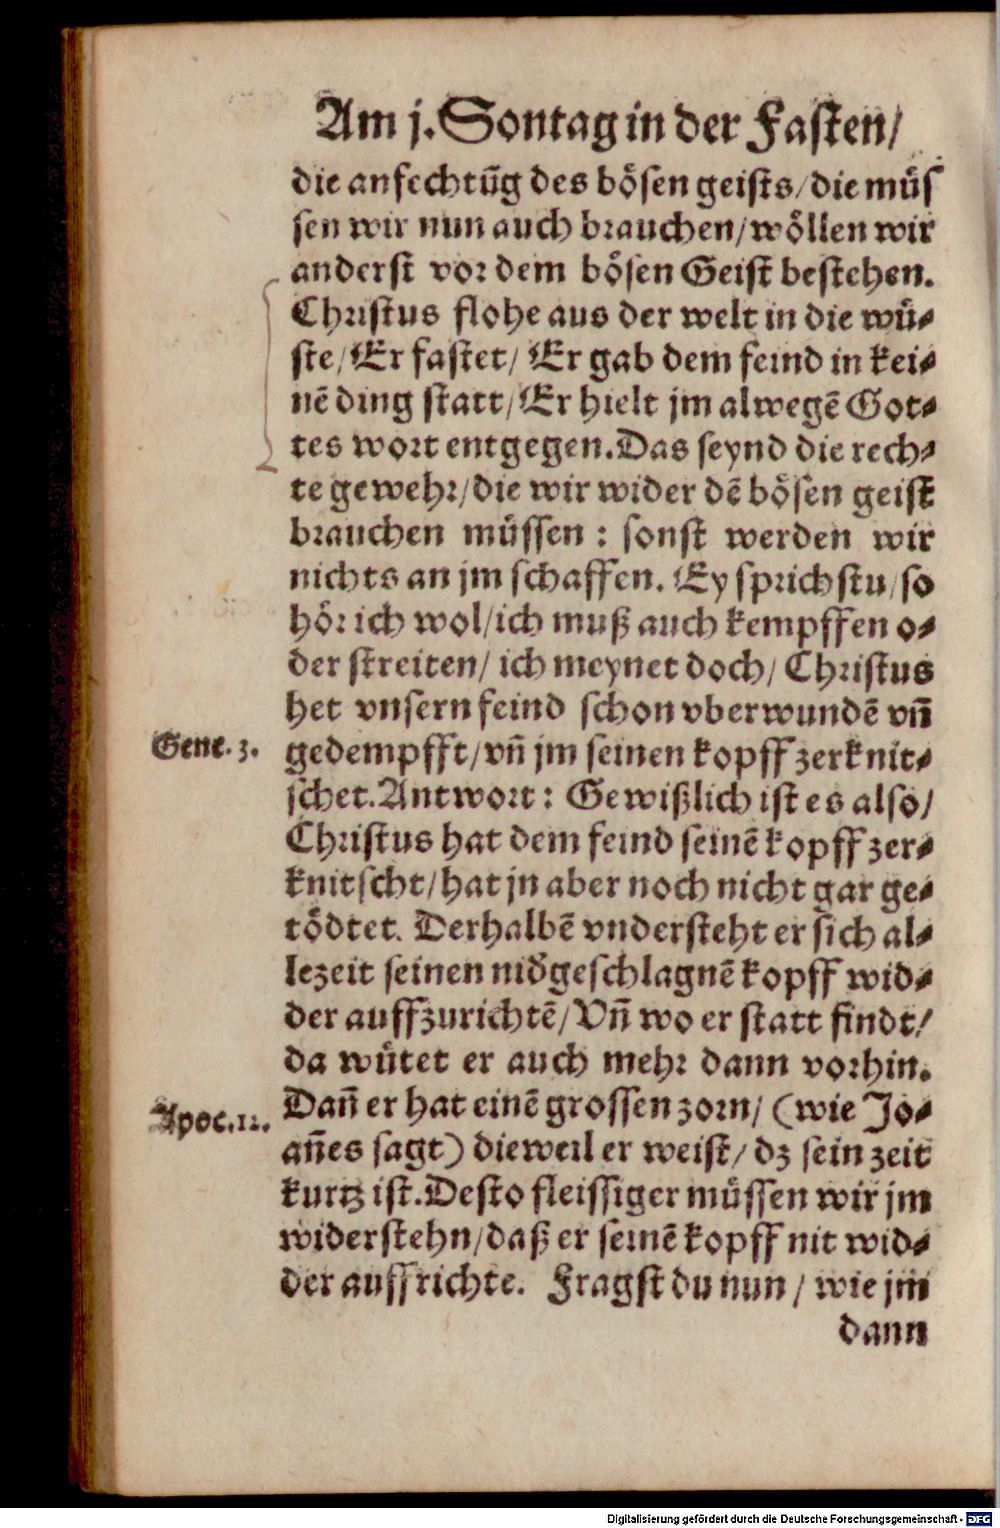 Am j. Sontag in der Fasten/
die anfechtũg des bösen geists/die müs
sen wir nun auch brauchen/wöllen wir
anderst vor dem bösen Geist bestehen.
Christus flohe aus der welt in die wü⸗
ste/Er fastet/Er gab dem feind in kei⸗
nẽ ding statt/Er hielt jm alwegẽ Got⸗
tes wort entgegen.Das seynd die rech⸗
te gewehr/die wir wider dẽ bösen geist
brauchen müssen : sonst werden wir
nichts an jm schaffen. Ey sprichstu/so
hör ich wol/ich muß auch kempffen o⸗
der streiten/ich meynet doch/Christus
het vnsern feind schon vberwundẽ vñ
Gene. 3.
gedempfft/vñ jm seinen kopff zerknit⸗
schet.Antwort : Gewißlich ist es also/
Christus hat dem feind seinẽ kopff zer⸗
knitscht/hat jn aber noch nicht gar ge⸗
tödtet. Derhalbẽ vndersteht er sich al⸗
lezeit seinen nid̃geschlagnẽ kopff wid⸗
der auffzurichtẽ/Vñ wo er statt findt/
da wütet er auch mehr dann vorhin.
Apoc.12.
Dañ er hat einẽ grossen zorn/(wie Jo⸗
añes sagt) dieweil er weist/dz sein zeit
kurtz ist.Desto fleissiger müssen wir jm
widerstehn/daß er seinẽ kopff nit wid⸗
der auffrichte. Fragst du nun/wie jm
dann
Digitalisierung gefördert durch die Deutsche Forschungsgemeinschaft - DFG